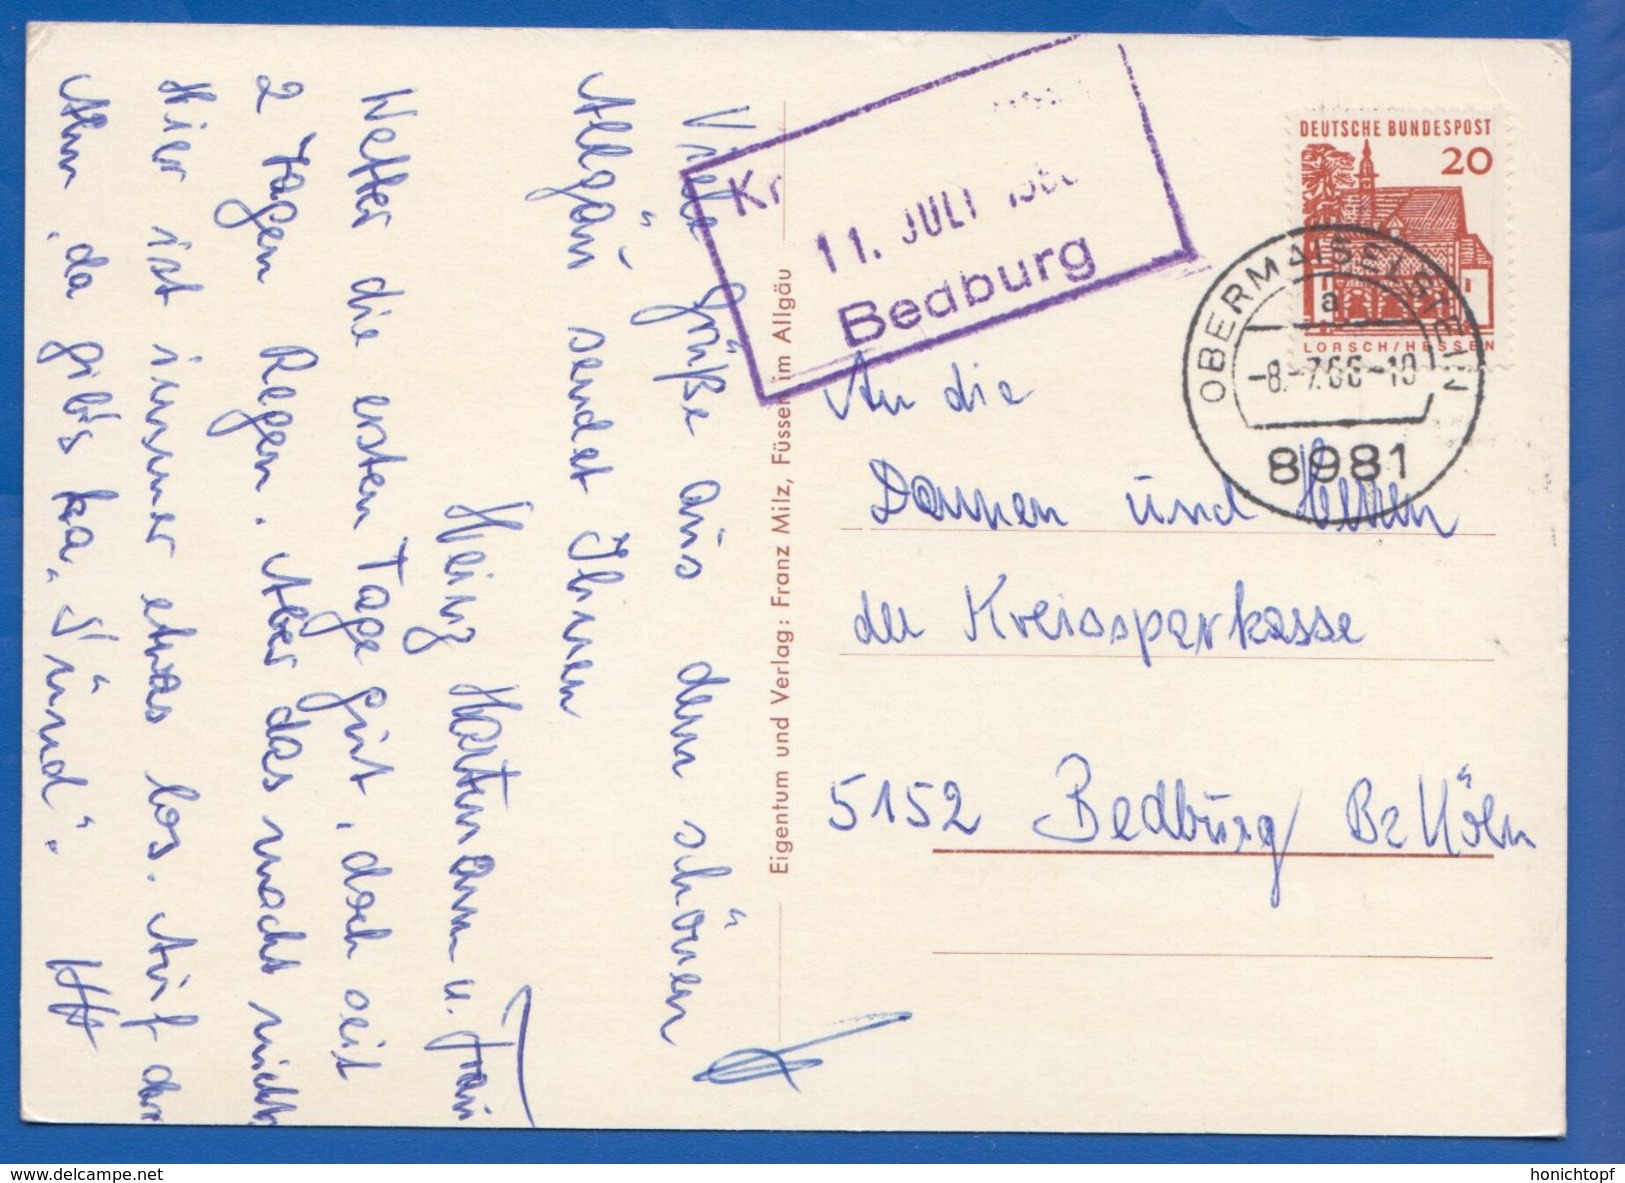 Viele Grüße aus dem schönen
Allgäu sendet Ihnen
Heinz Hartmann u. Frau
Wetter die ersten Tage gut, doch seit
2 Tagen Regen. Aber das macht nichts
Hier ist immer etwas los. Auf der
Alm "da gibt's ka "Sünd".
Eigentum und Verlag: Franz Milz, Füssen im Allgäu
Kr
11. JULI 196
Bedburg
DEUTSCHE BUNDESPOST
20
LORSCH/HESSEN
OBERMAISELSTEIN
a
-8.-7.66-10
8981
An die
Damen und Herren
der Kreissparkasse
5152 Bedburg Bz Köln
www.delcampe.net
honichtopf